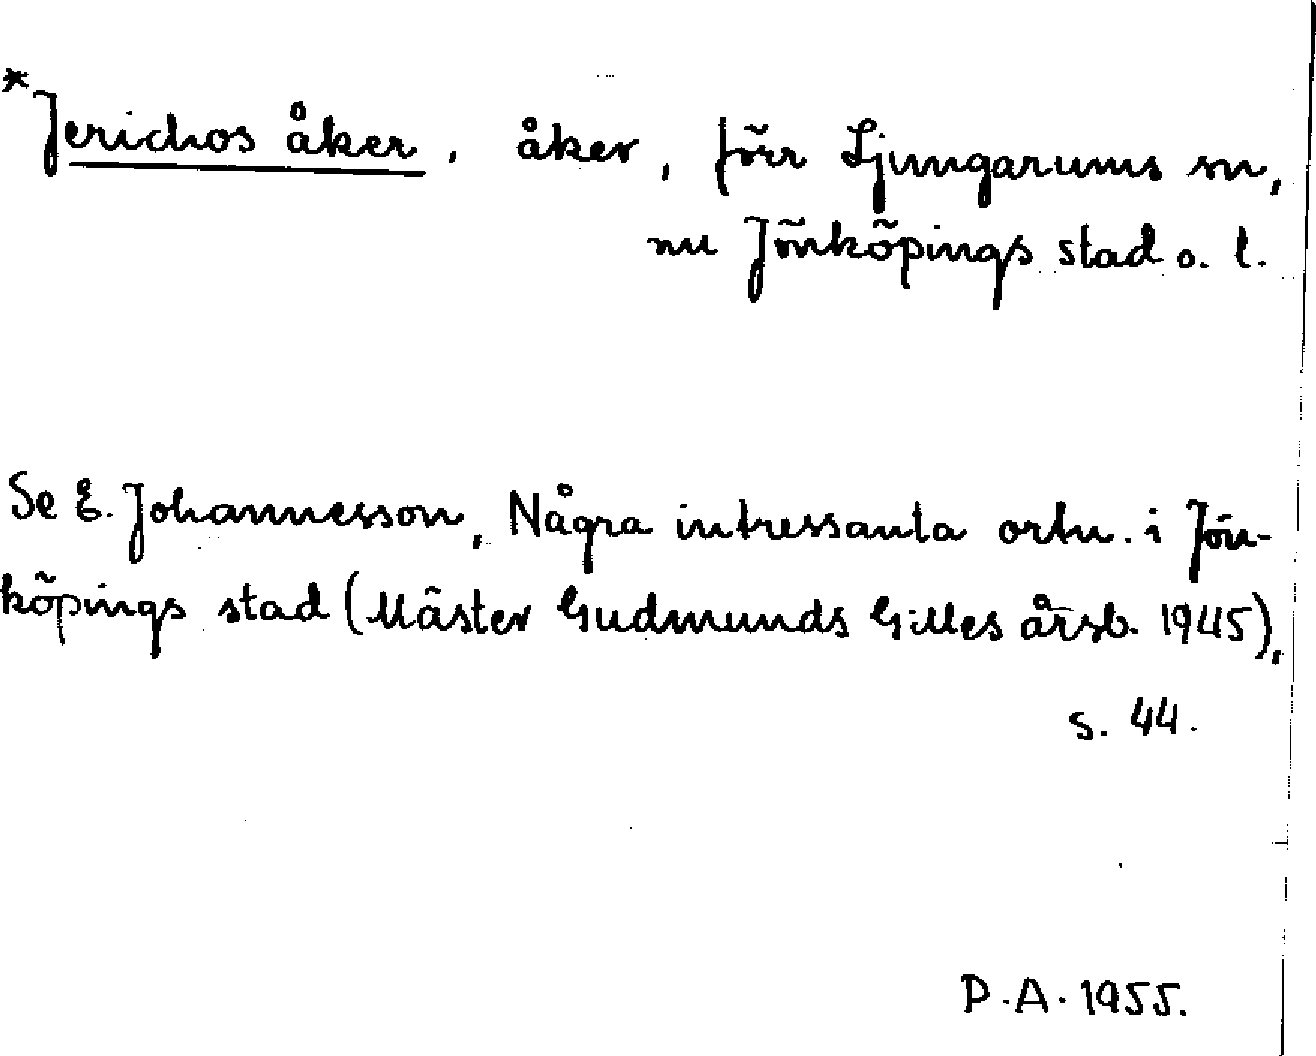 *Jerichos åker, åker, förr Ljungarums sn,
nu Jönköpings stad o. l.
Se E. Johannesson, Några intressanta ortn. i Jön-
köpings stad (Mäster Gudmunds Gilles årsb. 1945),
s. 44.
P.A. 1955.